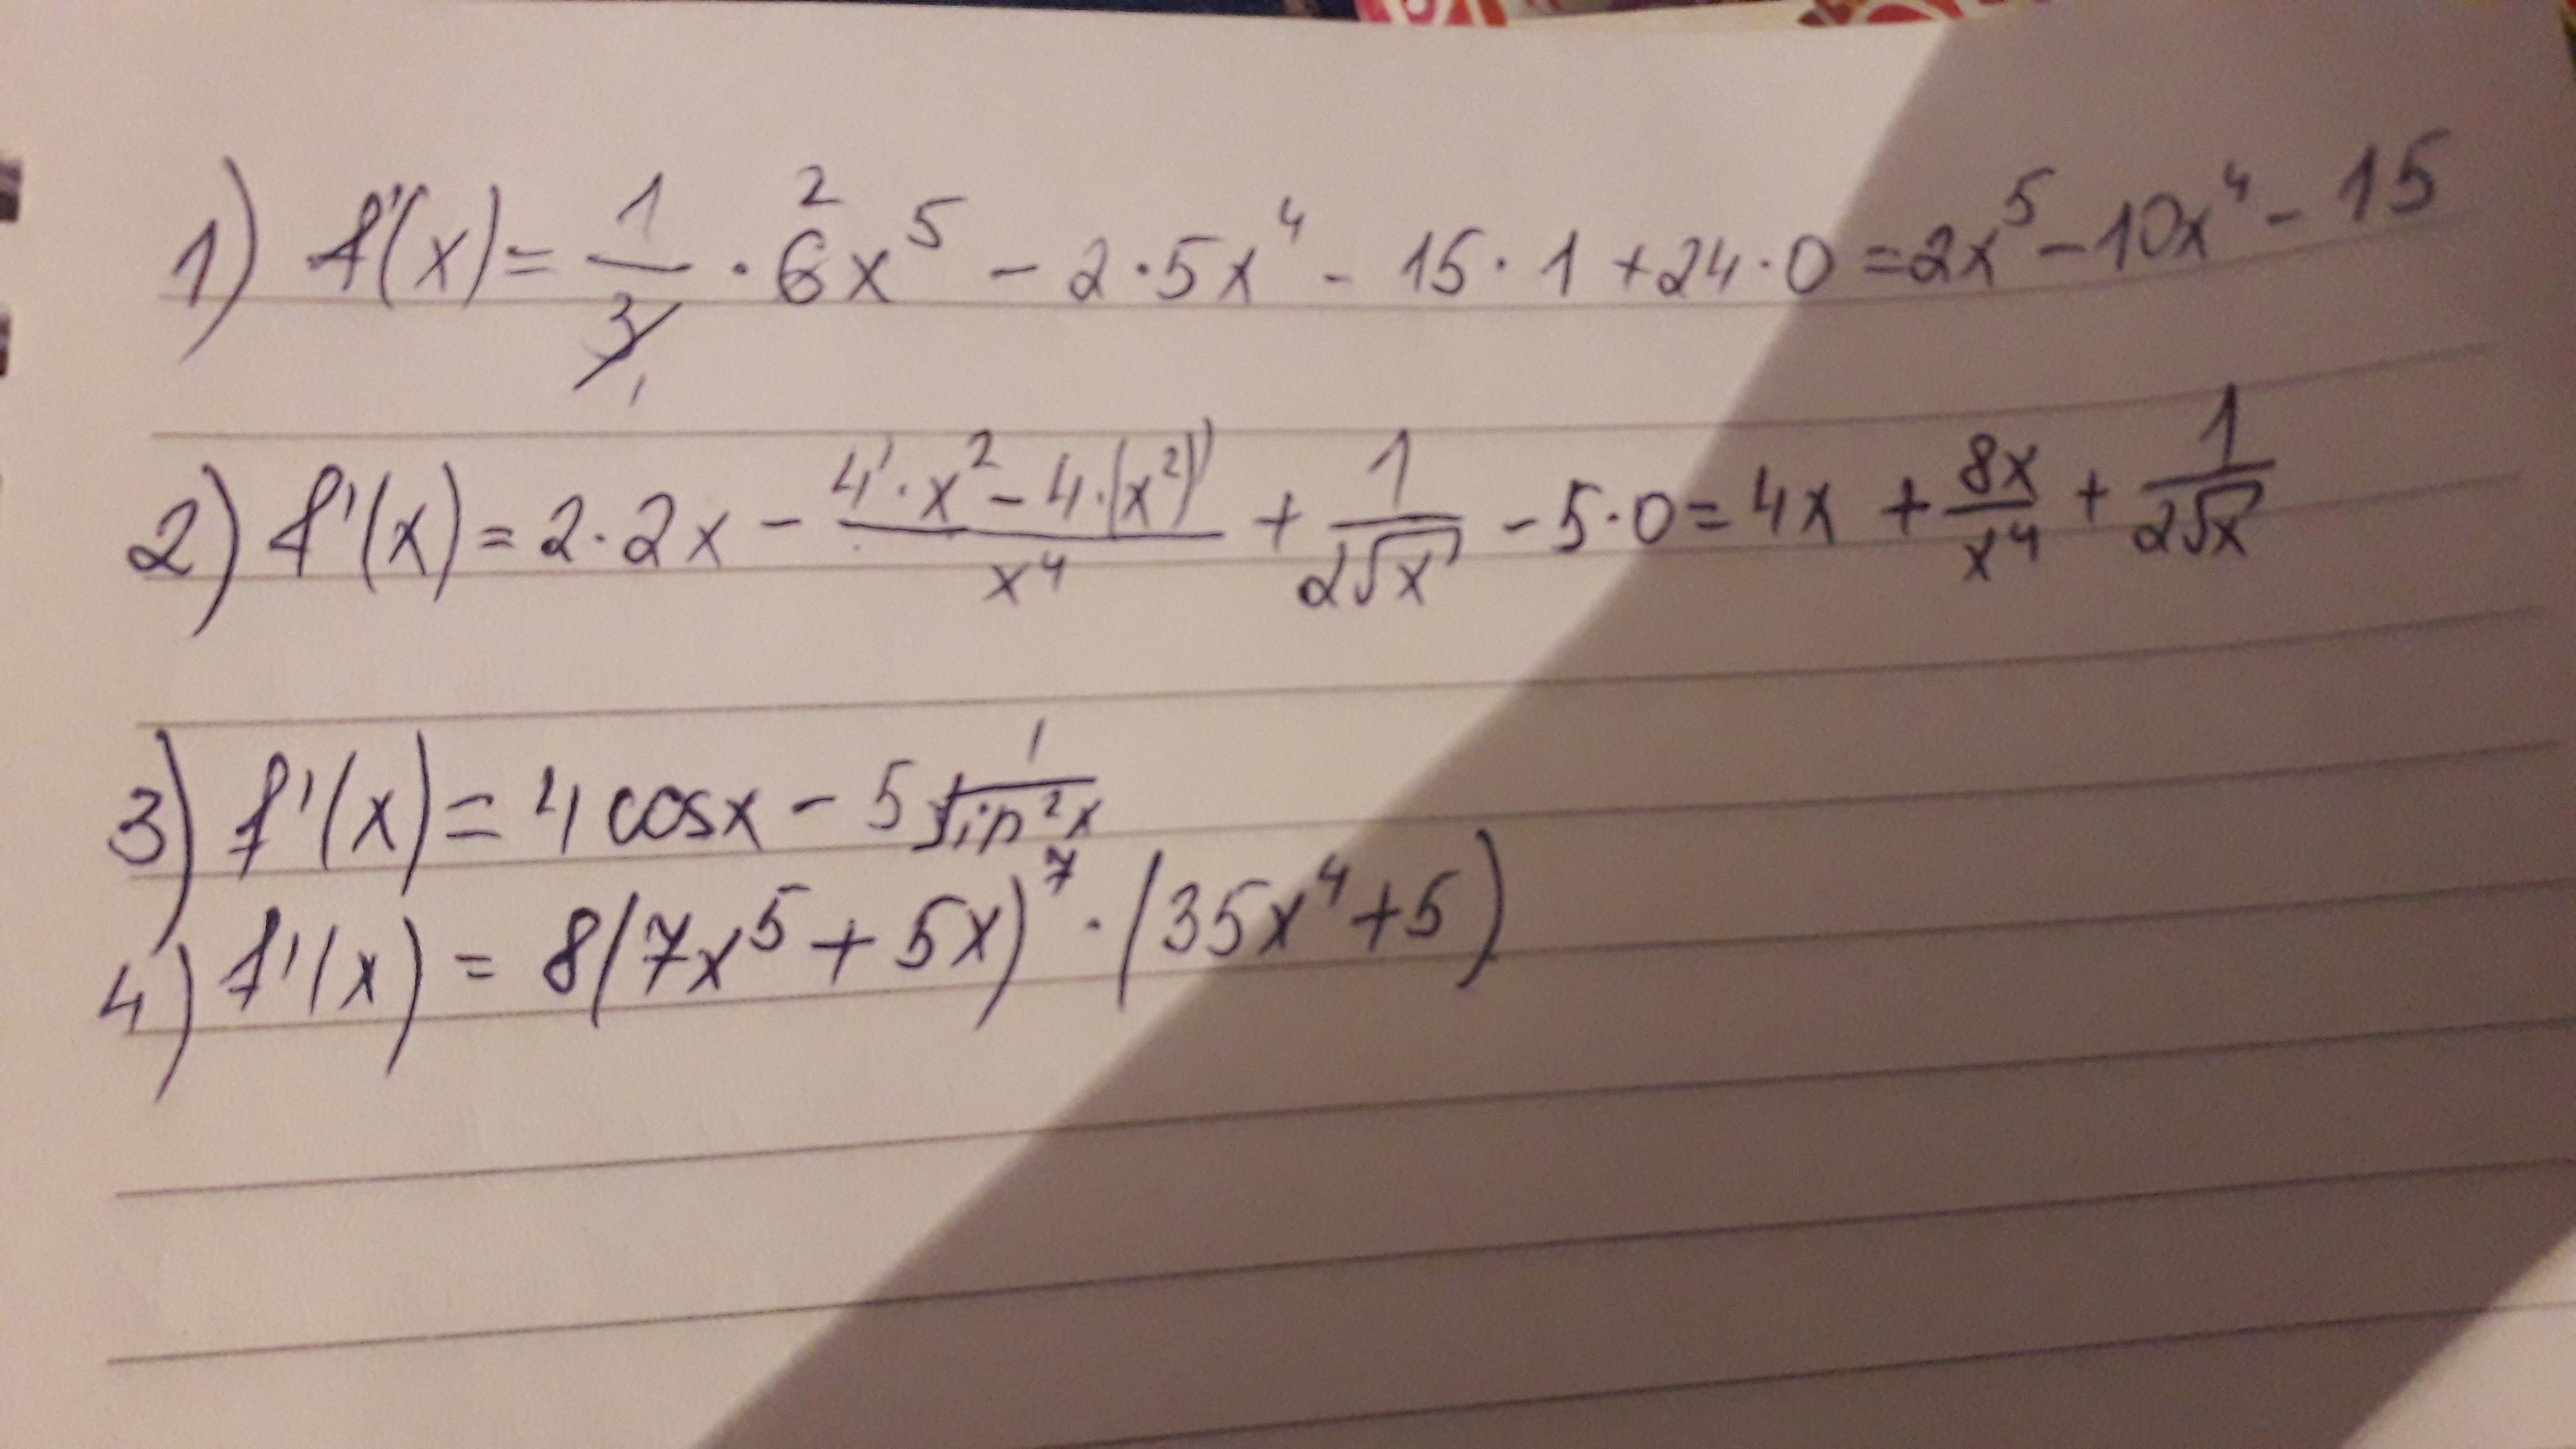 1) f'(x) = 1/3̸ 1 · 6 2 x⁵ − 2·5x⁴ − 15·1 + 24·0 = 2x⁵ − 10x⁴ − 15
2) f'(x) = 2·2x − (4'·x² − 4·(x²)')/x⁴ + 1/(2√x) − 5·0 = 4x + 8x/x⁴ + 1/(2√x)
3) f'(x) = 4 cosx − 5 1/(sin²x)
4) f'(x) = 8(7x⁵ + 5x)⁷ · (35x⁴ + 5)